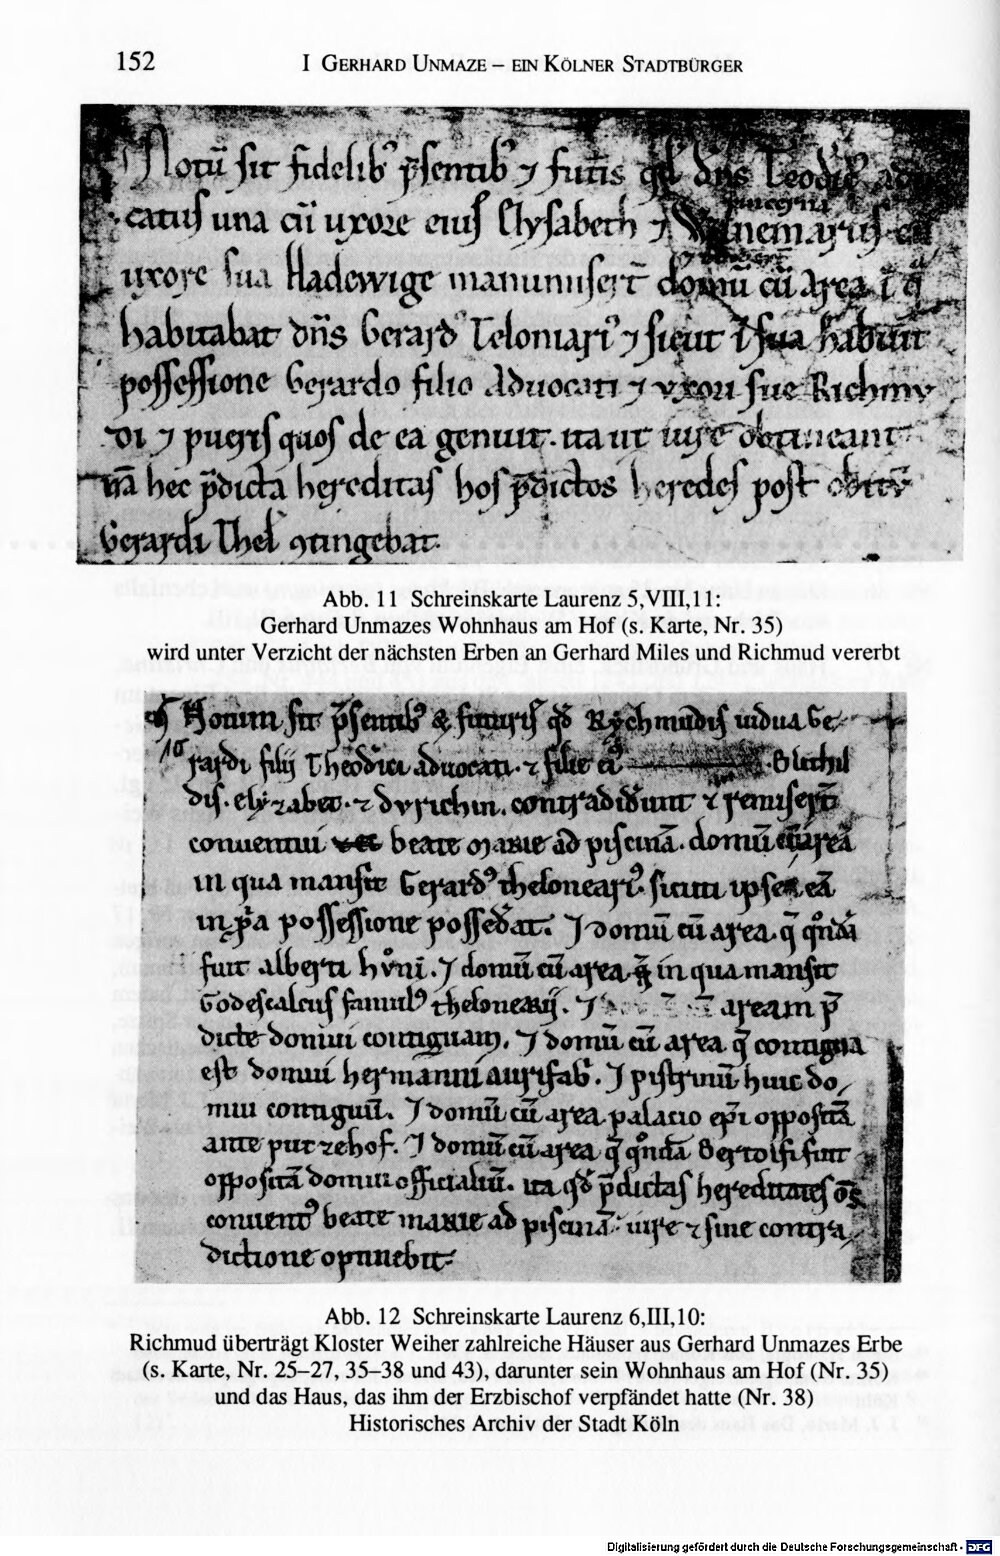 152
I GERHARD UNMAZE – EIN KÖLNER STADTBÜRGER
Notū sit fidelib' p̄sentib' ⁊ futuris qd̄ dn̄s Teodic'
catus una cū uxore eius Elysabeth ⁊
uxore sua Hadewige manumisert̄ domū cū area ī q̄
habitabat dn̄s Gerard' Teloniari' ⁊ sicut ī sua habuit
possessione Gerardo filio Aduocati ⁊ uxori sue Richmu
di ⁊ pueris quos de ea genuit. ita ut iure obtineant
nā hec p̄dicta hereditas hos p̄dictos heredes post obitū
Gerardi Thel' ꝯtingebat.
Abb. 11 Schreinskarte Laurenz 5,VIII,11:
Gerhard Unmazes Wohnhaus am Hof (s. Karte, Nr. 35)
wird unter Verzicht der nächsten Erben an Gerhard Miles und Richmud vererbt
Notum sit p̄sentib' & futuris qd̄ Rychmudis uidua Ge
10
rardi filii Theodici aduocati. ⁊ filie ei' Blithil
dis. elyzabet. ⁊ durichin. contradid'unt ⁊ remiserū
conuentui beate marie ad piscinā. domū cū area
in qua mansit Gerard' theloneari'. sicut ipse eā
in p̄a possessione possed'at. I domū cū area. q̄ q'ndā
fuit alberti hūni. I domū cū area. in qua mansit
Godescalcus famul' thelonearii. I aream p̄
dicte domui contiguam. I domū cū area q̄ contigua
est domui hermanni aurifab'. I pistrinū huic do
mui contiguū. I domū cū area. palacio ep̄i oppositā
ante putzehof. I domū cū area q̄ q'ndā Bertolfi fuit
oppositā domui officialiū. ita qd̄ p̄dictas hereditates
conuent' beate marie ad piscinā. iure ⁊ sine contra
dictione optinebit.
Abb. 12 Schreinskarte Laurenz 6,III,10:
Richmud überträgt Kloster Weiher zahlreiche Häuser aus Gerhard Unmazes Erbe
(s. Karte, Nr. 25–27, 35–38 und 43), darunter sein Wohnhaus am Hof (Nr. 35)
und das Haus, das ihm der Erzbischof verpfändet hatte (Nr. 38)
Historisches Archiv der Stadt Köln
Digitalisierung gefördert durch die Deutsche Forschungsgemeinschaft - DFG